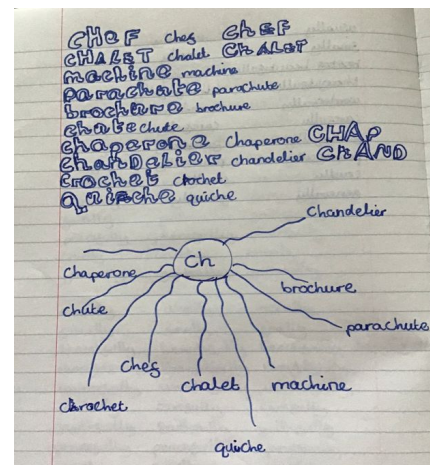 CHEF chef CHEF
CHALET chalet CHALET
machine machine
parachute parachute
brochure brochure
chute chute
chaperone chaperone CHAP
chanDelier chandelier CHAND
crochet crochet
quische quiche
Chandelier
Ch
chaperone
brochure
chute
parachute
chef
chalet
machine
crochet
quiche